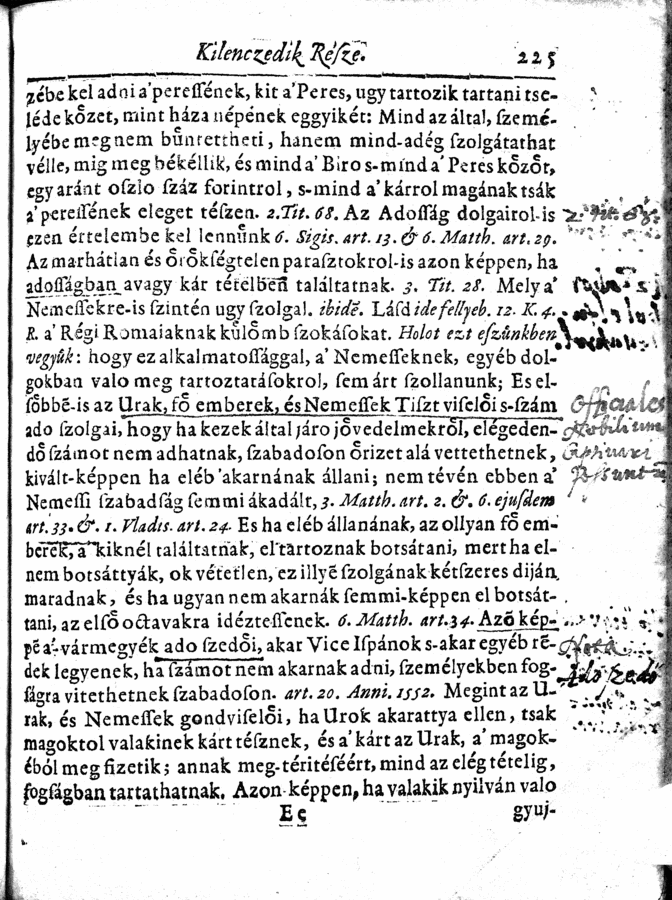 Kilenczedik Réſze. 225
zébe kel adni a' pereſſének, kit a' Peres, ugy tartozik tartani tse-
léde kőzet, mint háza népének eggyikét: Mind az által, ſzemé-
lyébe meg nem bűntettheti, hanem mind-adég ſzolgátathat
vélle, mig meg békéllik, és mind a' Biro s-mind a' Peres kőzőt,
egy aránt oſzlo ſzáz forintrol, s-mind a' kárrol magának tsák
a' pereſſének eleget téſzen. 2. Tit. 68. Az Adoſſág dolgairol-is
ezen értelembe kel lennűnk 6. Sigis. art. 13. & 6. Matth. art. 29.
Az marhátlan és őrőkſégtelen paraſztokrol-is azon képpen, ha
adoſſágban avagy kár tételbēn találtatnak. 3. Tit. 28. Mely a'
Nemeſſekre-is ſzintén ugy ſzolgal. ibidē. Láſd ide fellyeb. 12. K. 4.
R. a' Régi Romaiaknak kűlőmb ſzokáſokat. Holot ezt eſzűnkben
vegyűk: hogy ez alkalmatoſſággal, a' Nemeſſeknek, egyéb dol-
gokban valo meg tartoztatáſokrol, ſem árt ſzollanunk; Es el-
ſőbbē-is az Urak, fő emberek, és Nemeſſek Tiſzt viſelői s-ſzám
ado ſzolgai, hogy ha kezek által járo jővedelmekről, elégeden-
dő ſzámot nem adhatnak, ſzabadoſon őrizet alá vettethetnek,
kivált-képpen ha eléb 'akarnának állani; nem tévén ebben a'
Nemeſſi ſzabadſág ſemmi ákadált, 3. Matth. art. 2. &. 6. ejuſdem
art. 33. &. 1. Vladis. art. 24. Es ha eléb állanának, az ollyan fő em-
berek, a' kiknél találtatnak, el tartoznak botsátani, mert ha el-
nem botsáttyák, ok vétetlen, ez illyē ſzolgának kétſzeres diján
maradnak, és ha ugyan nem akarnák ſemmi-képpen el botsát-
tani, az elſő octavakra idézteſſenek. 6. Matth. art. 34. Azō kép-
pē a' vármegyék ado ſzedői, akar Vice Iſpánok s-akar egyéb rē-
dek legyenek, ha ſzámot nem akarnak adni, ſzemélyekben fog-
ſágra vitethetnek ſzabadoſon. art. 20. Anni. 1552. Megint az U-
rak, és Nemeſſek gondviſelői, ha Urok akarattya ellen, tsak
magoktol valakinek kárt téſznek, és a' kárt az Urak, a' magok-
éból meg fizetik; annak meg-téritéſéért, mind az elég tételig,
fogſágban tartathatnak. Azon képpen, ha valakik nyilván valo
Ee gyuj-
Officiales
Nobilium
Nota
Ado ſzedő